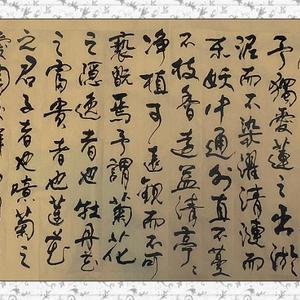 予獨愛蓮之出淤
泥而不染濯清漣而
不妖中通外直不蔓
不枝香遠益清亭々
净植可遠觀而不可
褻翫焉予謂菊花
之隱逸者也牡丹花
之富貴者也蓮花
之君子者也噫菊之